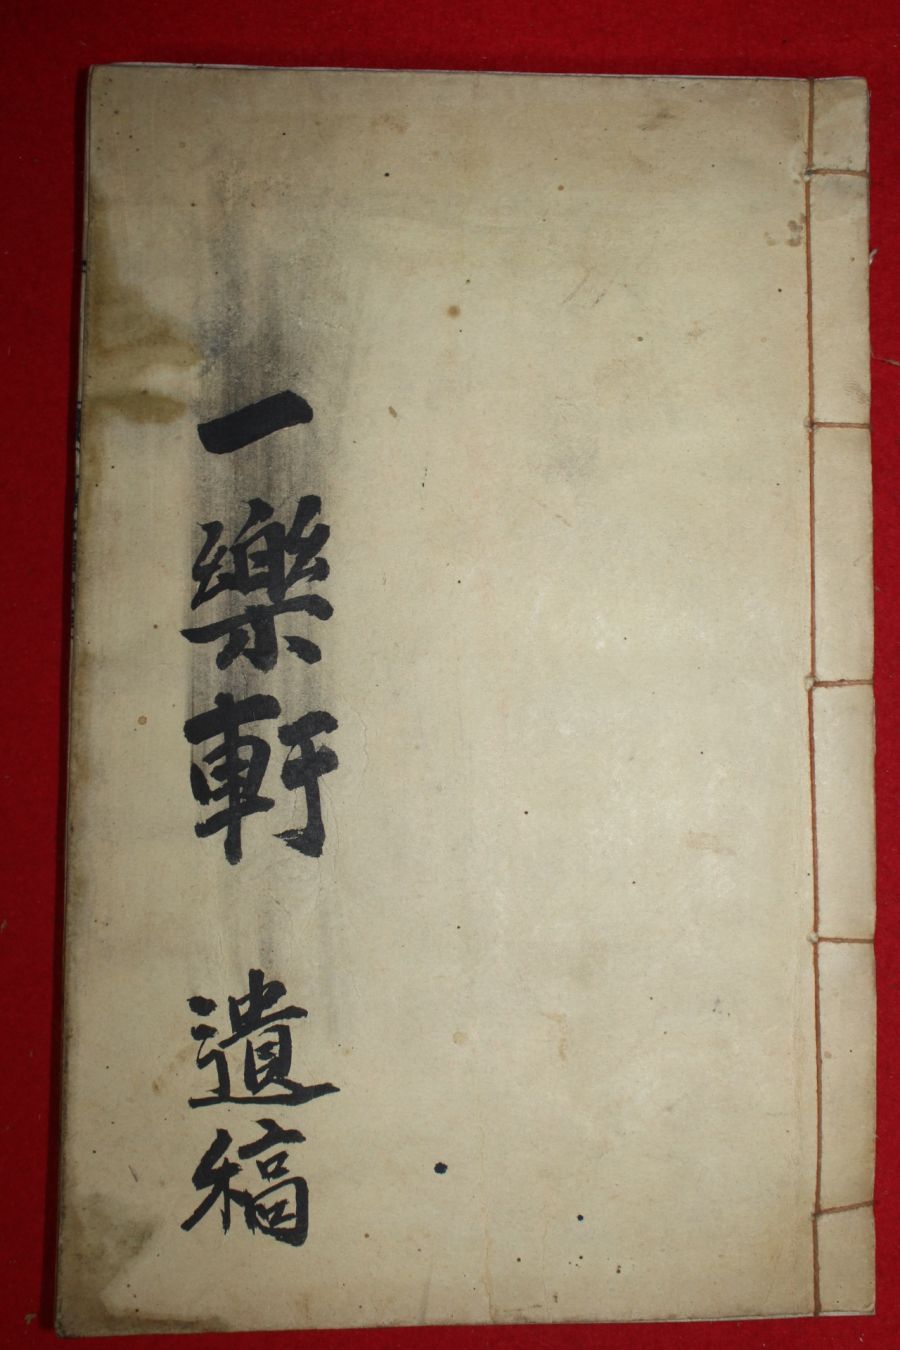 一樂軒 遺稿